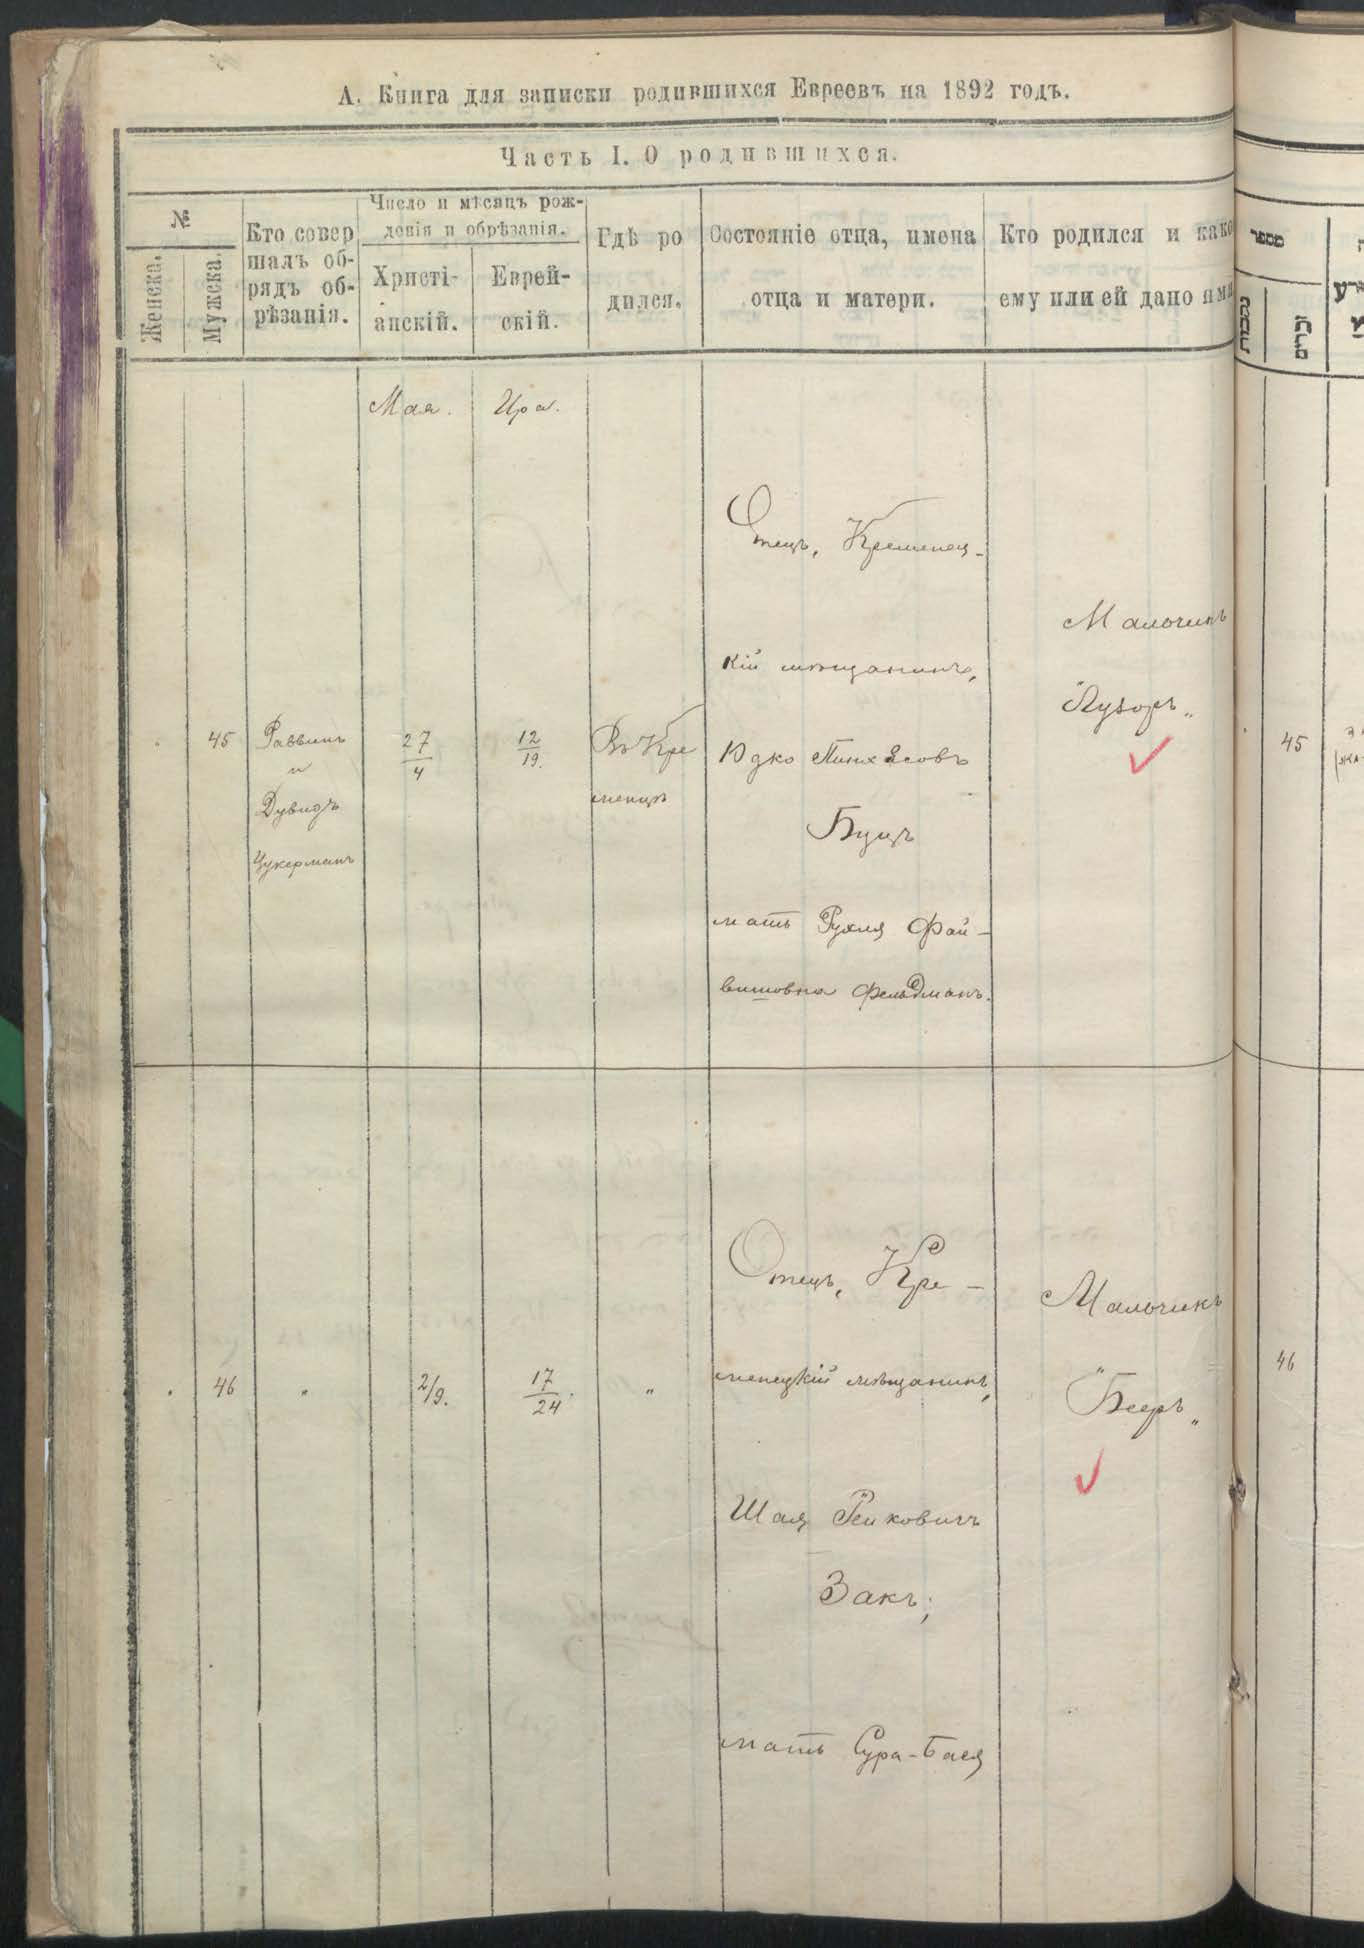 А. Книга для записки родившихся Евреевъ на 1892 годъ.
Часть I. О родившихся.
№
Женска.
Мужска.
Кто совер
шалъ об-
рядъ об-
рѣзанія.
Число и мѣсяцъ рож-
денія и обрѣзанія.
Христі-
анскій.
Еврей-
скій.
Гдѣ ро
дился.
Состояніе отца, имена
отца и матери.
Кто родился и како
ему или ей дано
Мая.
Ира.
45
Раввинъ
и
Дувидъ
Цукерманъ
27
4
12
19.
Въ Кре
менцѣ
Отецъ, Кременец-
кій мѣщанинъ,
Юдко Пинхасовъ
Буцъ
мать Рухля Фай-
вишовна Фельдманъ.
Мальчикъ
"Лузоръ"
46
"
2/9.
17
24
"
Отецъ, Кре-
менецкій мѣщанинъ,
Шая
Закъ;
мать Сура-Бася
Мальчикъ
"Бееръ"
מספר
נקבות
זכרים
45
46